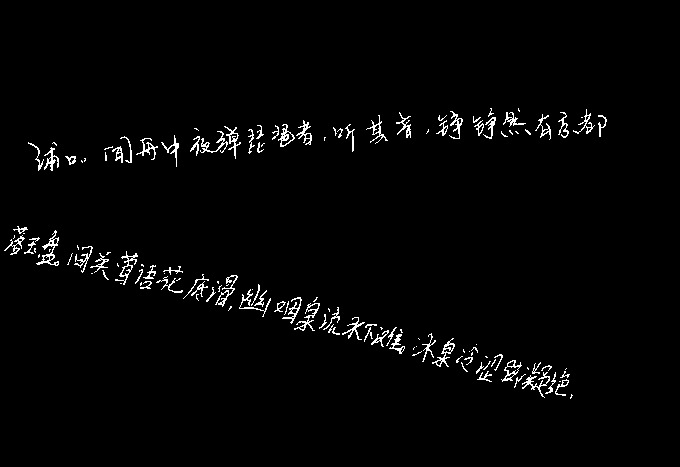 浦口。闻舟中夜弹琵琶者，听其音，铮铮然有京都
落玉盘。间关莺语花底滑，幽咽泉流水下难。冰泉冷涩弦凝绝，